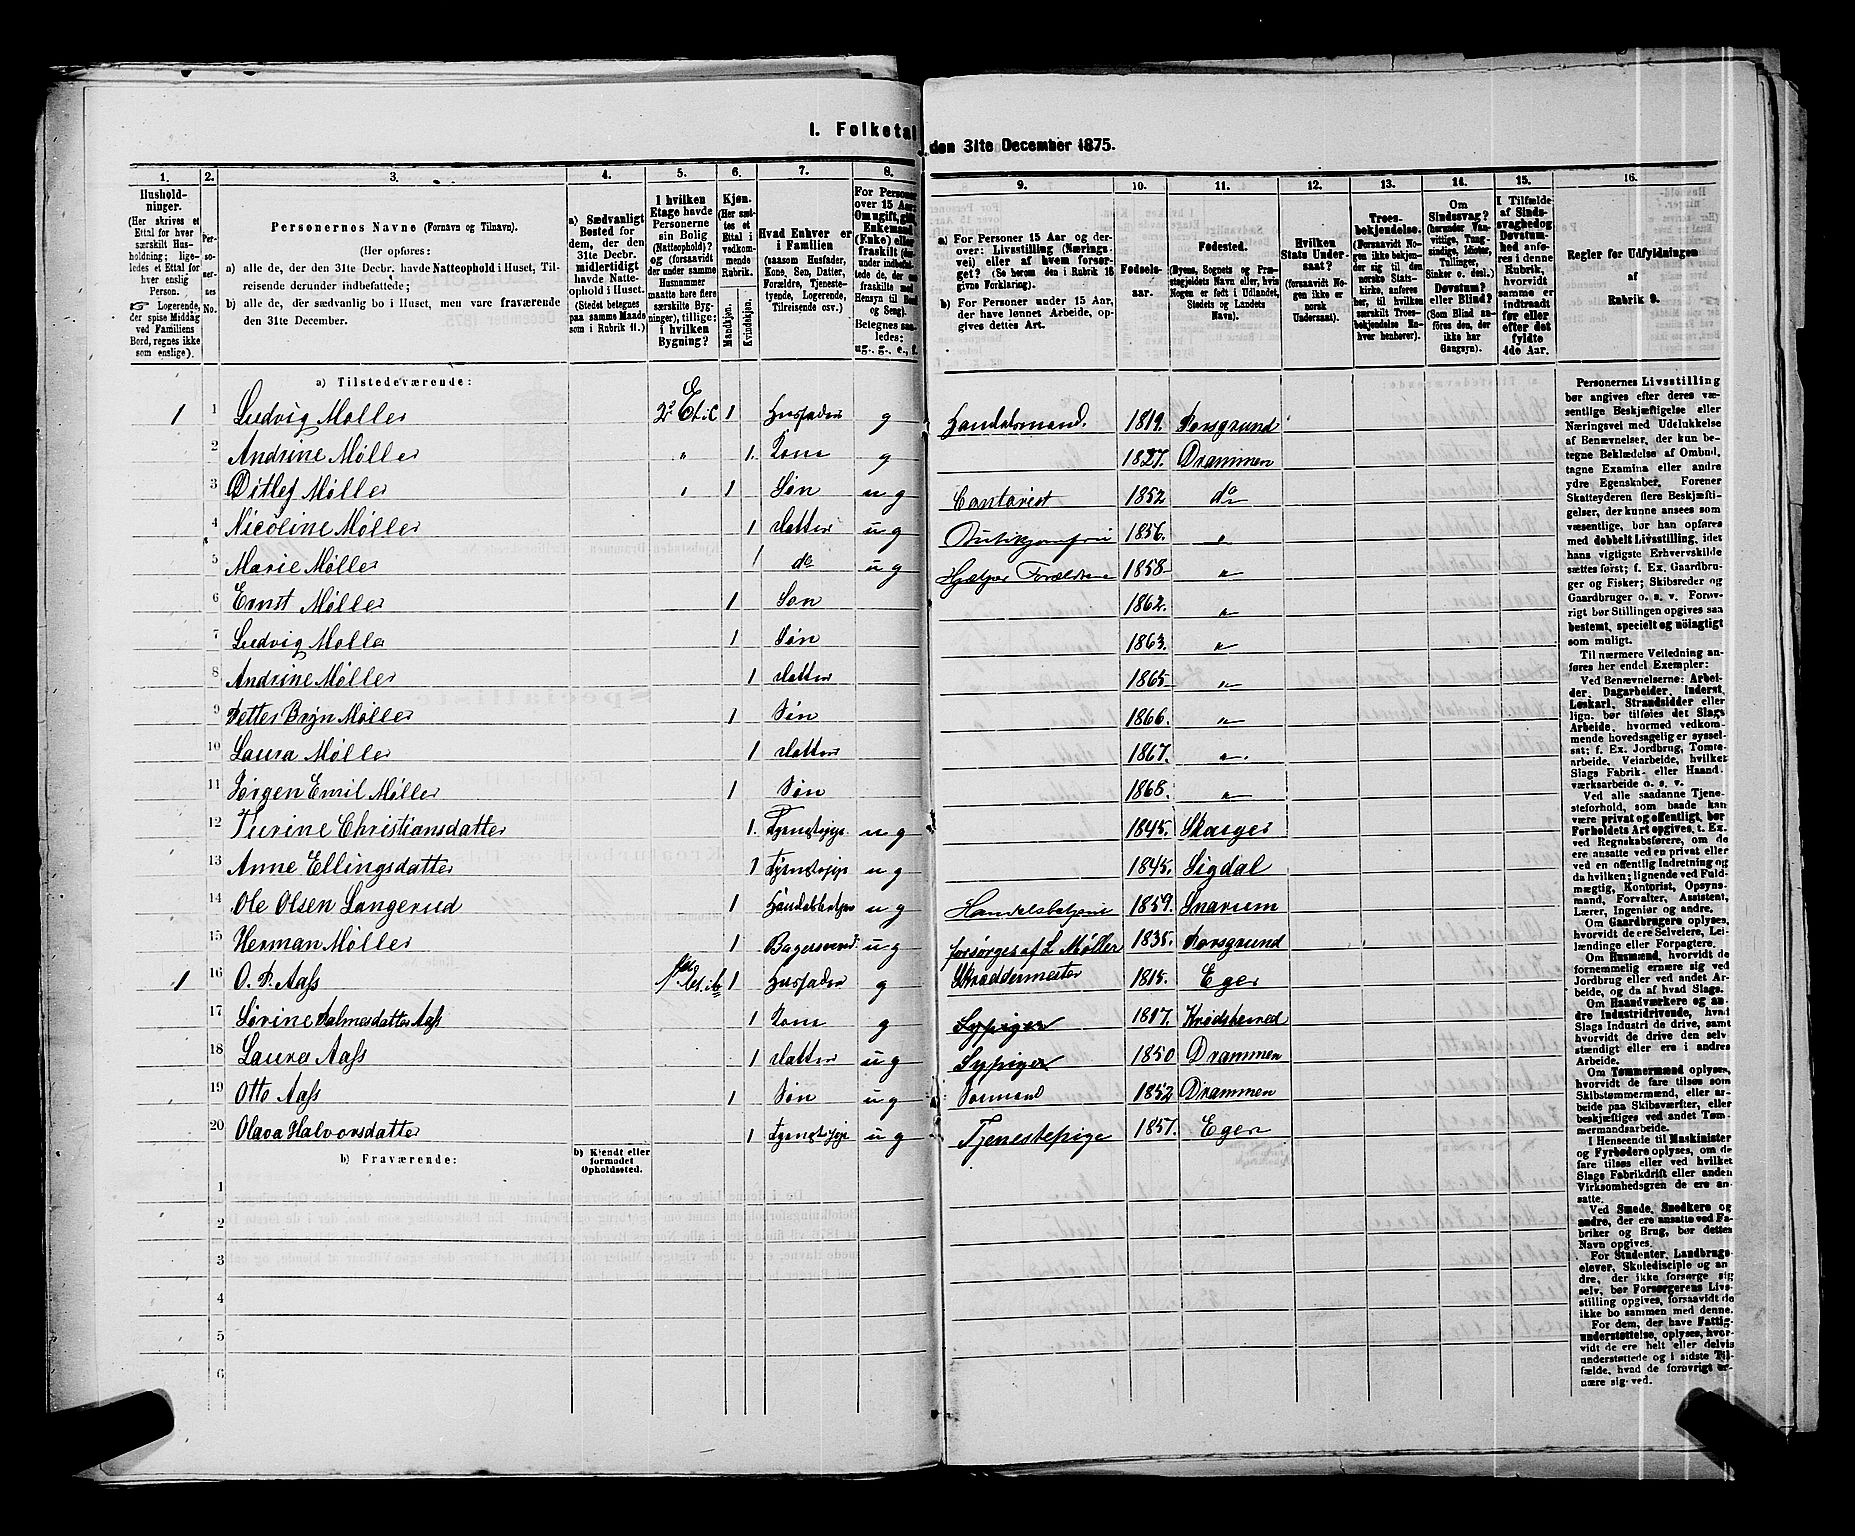 I. Folketal den 31te December 1875.
1. 2. 3. 4. 5. 6. 7. 8. 9. 10. 11. 12. 13. 14. 15. 16.
Husholdninger.
(Her skrives et
Ettal for hver
særskilt Husholdning; ligeledes et Ettal for
hver enslig
Person.
☞ Logerende,
der spise Middag
ved Familiens
Bord, regnes ikke
som enslige).
Personernes No.
Personernes Navne (Fornavn og Tilnavn).
(Her opføres:
a) alle de, der den 31te Decbr. havde Natteophold i Huset, Tilreisende derunder indbefattede;
b) alle de, der sædvanlig bo i Huset, men vare fraværende
den 31te December.
a) Sædvanligt
Bosted for
dem, der den
31te Decbr.
midlertidigt
havde Natteophold i Huset.
(Stedet betegnes
paa samme Maade
som i Rubrik 11.)
I hvilken
Etage havde
Personerne
sin Bolig
(Natteophold)?
og (forsaavidt
der under samme
Husnummer
maatte høre flere
særskilte Bygninger), tillige:
i hvilken
Bygning?
Kjøn.
(Her sættes et
Ettal i
vedkommende
Rubrik.
Mandkjøn.
Kvindekjøn.
Hvad Enhver er
i Familien
(saasom Husfader,
Kone, Søn, Datter,
Forældre, Tjenestetyende, Logerende,
Tilreisende osv.)
For Personer
over 15 Aar:
Om ugift, gift,
Enkemand
(Enke) eller
fraskilt
ug., g., e., f.
a) For Personer 15 Aar og derover: Livsstilling (Næringsvei) eller af hvem forsørget? (Se herom den i Rubrik 16
givne Forklaring).
b) For Personer under 15 Aar,
der have lønnet Arbeide, opgives dettes Art.
Fødselsaar.
Fødested.
(Byens, Sognets og Præstegjeldets Navn eller, hvis
Nogen er født i Udlandet,
Stedets og Landets
Navn).
Hvilken
Stats Undersaat?
(forsaavidt Nogen ikke er
norsk
Undersaat).
Troesbekjendelse.
(Forsaavidt Nogen ikke bekjender sig til
den norske Statskirke, anføres
her, til hvilken
særskilt Troesbekjendelse Enhver henhører).
Om
Sindssvag?
(herunder Vanvittige, Tungsindige, Idioter,
Tullinger,
Sinker o. desl.)
Døvstum?
eller Blind?
(Som Blind anføres den, der
ikke har
Gangsyn).
I Tilfælde
af Sindssvaghed og
Døvstumhed anføres i denne
Rubrik,
hvorvidt
samme er
indtraadt
før eller
efter det
fyldte
4de Aar.
Regler for Udfyldningen
af
Rubrik 9.
a) Tilstedeværende:
1 1 Ludvig Møller 1 Husfader g Handelsmand. 1819. Porsgrund
2 Andrine Møller " 1. Kone g 1827. Drammen
3 Ditlef Møller " 1 Søn u g Contorist 1852 do
4 Nicoline Møller 1 Datter u g 1856. "
5 Marie Møller 1 do u g Hjælper Forældrene 1858 "
6 Ernst Møller 1 Søn 1862. "
7 Ludvig Møller 1 Søn 1863. "
8 Andrine Møller 1 Datter 1865 "
9 Petter Bryn Møller 1 Søn 1866. "
10 Laura Møller 1 Datter 1867. "
11 Jørgen Emil Møller 1 Søn 1868. "
12 Thrine Christiansdatter 1. u g 1845.
13 Anne Ellingsdatter 1 u g 1845. Sigdal
14 Ole Olsen Langerud 1 u g Handelsbetjent 1859. Snarum
15 Herman Møller 1 Bagersvend u g forsørges af L Møller 1835. Porsgrund
1 16 O. P. Aass 1 Husfader g Skræddermester 1815. Eger
17 Sørine Palmesdatter Aass 1 Kone g Sypiger 1817. Krødsherred
18 Laura Aass 1 Datter u g Sypiger 1850 Drammen
19 Otto Aass 1 Søn u g Sømand 1852 Drammen
20 Olava Halvorsdatter 1 u g Tjenestepige 1857. Eger
b) Fraværende:
b) Kjendt eller
formodet
Opholdssted.
1
2
3
4
5
6
Personernes Livsstilling
bør angives efter deres væsentlige Beskjæftigelse eller
Næringsvei med Udelukkelse
af Benævnelser, der kun betegne Beklædelse af Ombud,
tagne Examina eller andre
ydre Egenskaber. Forener
Skatteyderen flere Beskjæftigelser, der kunne ansees som
væsentlige, bør han opføres
med dobbelt Livsstilling, idet
hans vigtigste Erhvervskilde
sættes først; f. Ex. Gaardbruger og Fisker; Skibsreder og
Gaardbruger o. s. v. Forøvrigt bør Stillingen opgives saa
bestemt, specielt og nöiagtigt
som muligt.
Til nærmere Veiledning anføres her endel Exempler:
Ved Benævnelserne: Arbeider, Dagarbeider, Inderst,
Løskarl, Strandsidder eller
lign. bør tilføies det Slags
Arbeide, hvormed vedkommende hovedsagelig er sysselsat; f. Ex. Jordbrug, Tomtearbeide, Veiarbeide, hvilket
Slags Fabrik- eller Haandværksarbeide o. s. v.
Ved alle saadanne Tjenesteforhold, som baade kan
være privat og offentligt, bør
Forholdets Art opgives, t. Ex.
ved Regnskabsførere, om de
ere ansatte ved en privat eller
en offentlig Indretning og
da hvilken; lignende ved Fuldmægtig, Kontorist, Opsynsmand, Forvalter, Assistent,
Lærer, Ingeniør og andre.
Om Gaardbrugere oplyses,
hvorvidt de ere Selveiere, Leilændinge eller Forpagtere.
Om Husmænd, hvorvidt de
fornemmelig ernære sig ved
Jordbrug eller ved andet Arbeide, og da af hvad Slags.
Om Haandværkere og andre Industridrivende, hvad
Slags Industri de drive, samt
hvorvidt de drive den selvstændigt eller ere i andres
Arbeide.
Om Tømmermænd oplyses,
hvorvidt de fare tilsøs som
Skibstømmermænd, eller arbeide paa Skibsværfter, eller
beskjæftiges ved andet Tømmermandsarbeide.
I Henseende til Maskinister
og Fyrbødere oplyses, om de
fare tilsøs eller ved hvilket
Slags Fabrikdrift eller anden
Virksomhedsgren de ere ansatte.
Ved Smede, Snedkere og
andre, der ere ansatte ved Fabriker og Brug, bør dettes
Navn opgives.
For Studenter, Landbrugselever, Skoledisciple og andre, der ikke forsørge sig
selv, bør Forsørgerens Livsstilling opgives, forsaavidt de
ikke bo sammen med denne.
For dem, der have Fattigunderstøttelse, oplyses, hvorvidt de ere helt eller delvis
understøttede og i sidste Tilfælde, hvad de forøvrigt ernære sig ved.